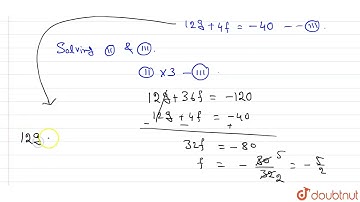 12g + 4f = -40 -- (iii).
Solving (ii) & (iii).
(ii) × 3 - (iii)
12g + 36f = -120
12g + 4f = -40
- - +
32f = -80
f = - 80/32 5/2 = - 5/2
12g
doubtnut